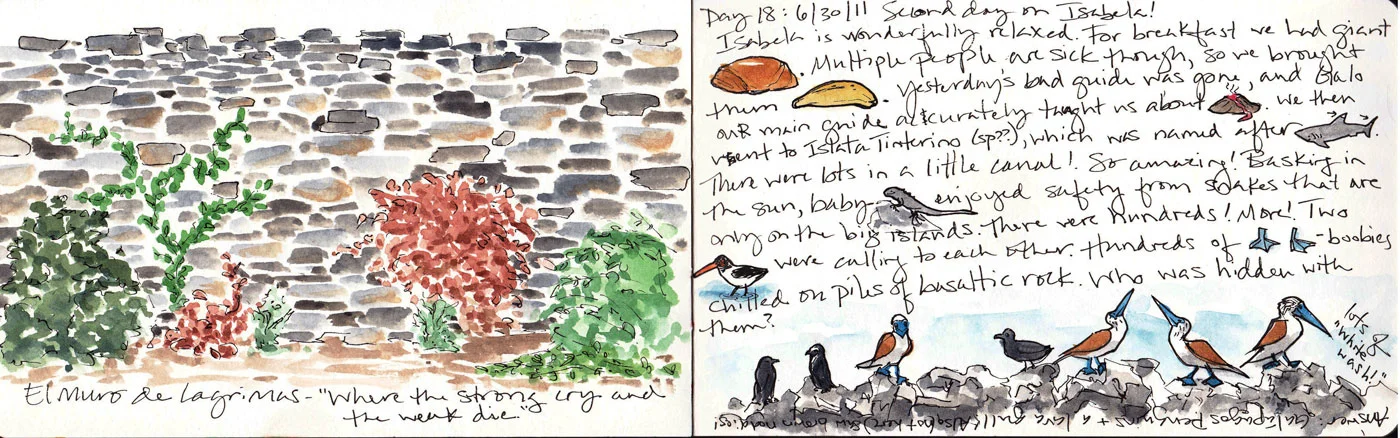 El Muro de Lagrimas - "Where the strong cry and
the weak die."
Day 18: 6/30/11 Second day on Isabela!
Isabela is wonderfully relaxed. For breakfast we had giant
. Multiple people are sick though, so we brought
them . Yesterday's bad guide was gone, and Galo
our main guide accurately taught us about . We then
went to Islata Tintorino (sp??), which was named after .
There were lots in a little canal! So amazing! Basking in
the sun, baby enjoyed safety from snakes that are
only on the big islands. There were hundreds! More! Two
were calling to each other. Hundreds of -boobies
chilled on piles of basaltic rock. Who was hidden with
them?
lots
"white
wash!"
Answer: Galapagos Penguins + a lava gull (Also brown noddies)